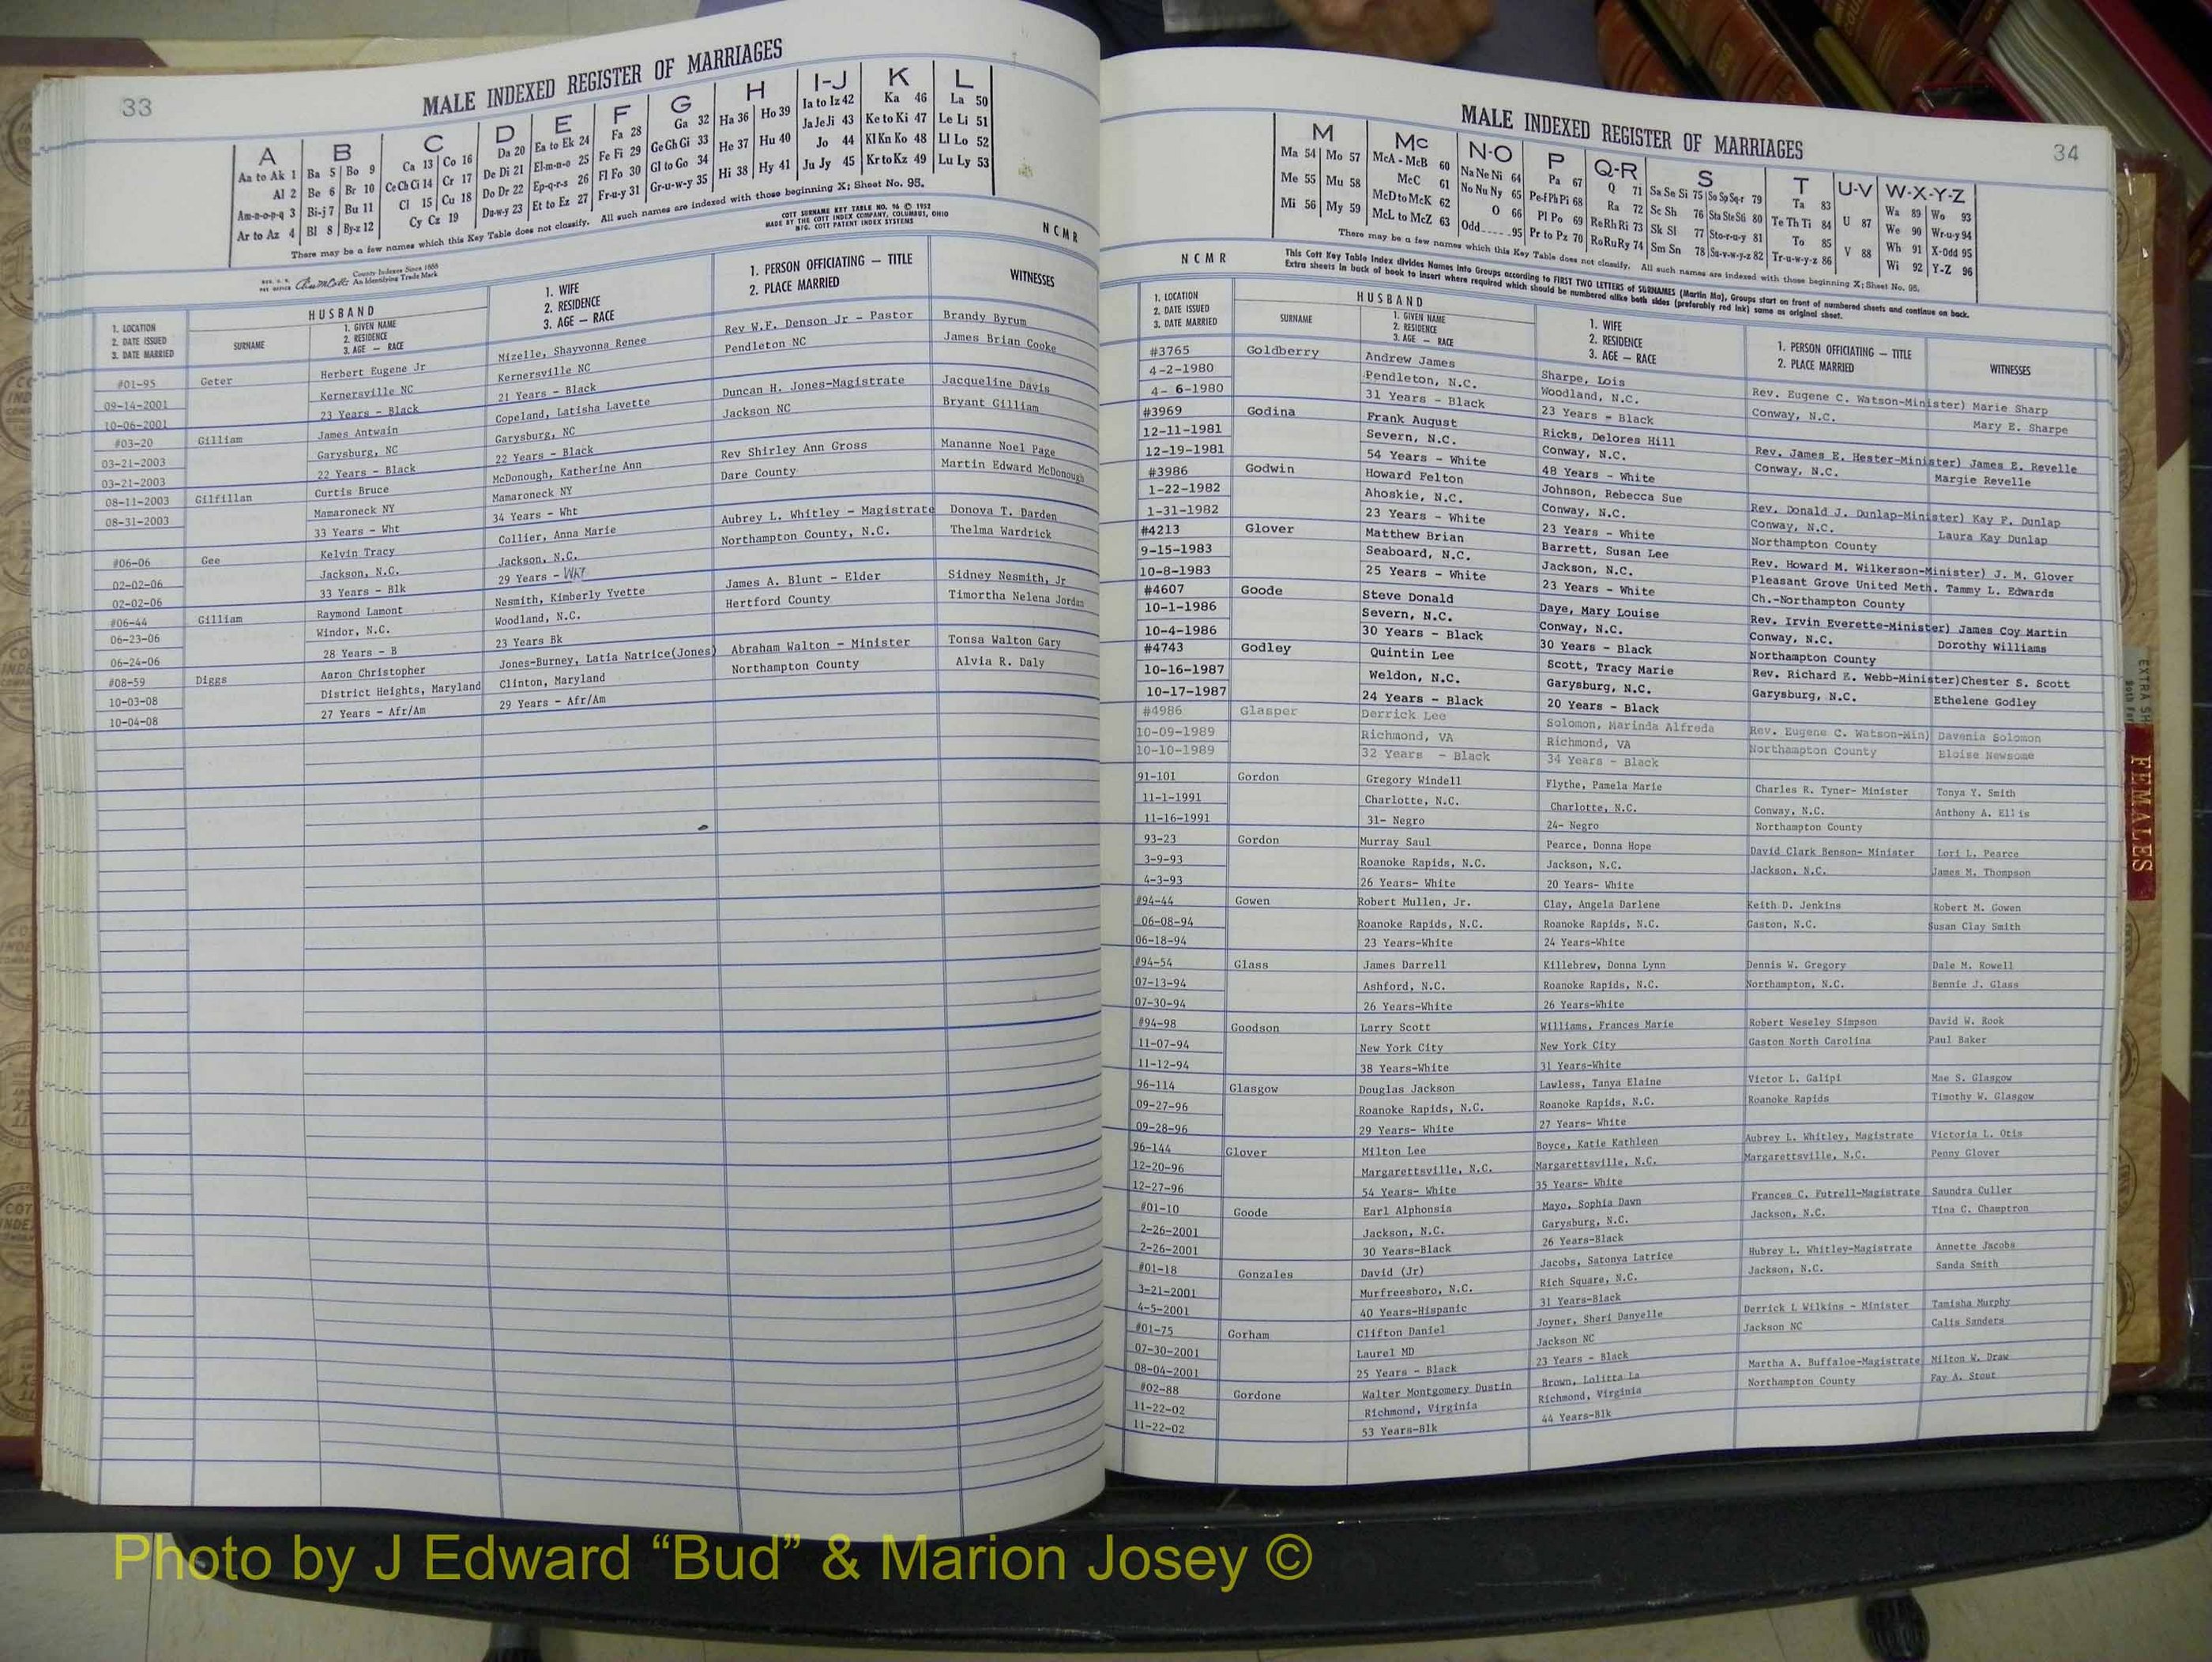 33
MALE INDEXED REGISTER OF MARRIAGES
A B C D E F G H I-J K L
Aa to Ak 1 Ba 5 Bo 9 Ca 13 Co 16 Da 20 Ea to Ek 24 Fa 28 Ga 32 Ha 36 Ho 39 Ia to Iz 42 Ka 46 La 50
Al 2 Be 6 Br 10 Ce Ch Ci 14 Cr 17 De Di 21 El-m-n-o 25 Fe Fi 29 Ge Gh Gi 33 He 37 Hu 40 Ja Je Ji 43 Ke to Ki 47 Le Li 51
Am-n-o-p-q 3 Bi-j 7 Bu 11 Cl 15 Cu 18 Do Dr 22 Ep-q-r-s 26 Fl Fo 30 Gl to Go 34 Hi 38 Hy 41 Jo 44 Kl Kn Ko 48 Ll Lo 52
Ar to Az 4 Bl 8 By-z 12 Cy Cz 19 Du-w-y 23 Et to Ez 27 Fr-u-y 31 Gr-u-w-y 35 Ju Jy 45 Kr to Kz 49 Lu Ly 53
There may be a few names which this Key Table does not classify. All such names are indexed with those beginning X; Sheet No. 95.
COTT SURNAME KEY TABLE NO. 96 © 1952
MADE BY THE COTT INDEX COMPANY, COLUMBUS, OHIO
MFG. COTT PATENT INDEX SYSTEMS
County Indexes Since 1888
An Identifying Trade Mark
N C M R
1. LOCATION
2. DATE ISSUED
3. DATE MARRIED
HUSBAND
SURNAME
1. GIVEN NAME
2. RESIDENCE
3. AGE — RACE
1. WIFE
2. RESIDENCE
3. AGE — RACE
1. PERSON OFFICIATING — TITLE
2. PLACE MARRIED
WITNESSES
#01-95 Geter Herbert Eugene Jr Mizelle, Shayvonna Renee Rev W.F. Denson Jr - Pastor Brandy Byrum
09-14-2001 Kernersville NC Kernersville NC Pendleton NC James Brian Cooke
10-06-2001 23 Years - Black 21 Years - Black
#03-20 Gilliam James Antwain Copeland, Latisha Lavette Duncan H. Jones-Magistrate Jacqueline Davis
03-21-2003 Garysburg, NC Garysburg, NC Jackson NC Bryant Gilliam
03-21-2003 22 Years - Black 22 Years - Black
08-11-2003 Gilfillan Curtis Bruce McDonough, Katherine Ann Rev Shirley Ann Gross Mananne Noel Page
08-31-2003 Mamaroneck NY Mamaroneck NY Dare County Martin Edward McDonough
33 Years - Wht 34 Years - Wht
#06-06 Gee Kelvin Tracy Collier, Anna Marie Aubrey L. Whitley - Magistrate Donova T. Darden
02-02-06 Jackson, N.C. Jackson, N.C. Northampton County, N.C. Thelma Wardrick
02-02-06 33 Years - Blk 29 Years -
#06-44 Gilliam Raymond Lamont Nesmith, Kimberly Yvette James A. Blunt - Elder Sidney Nesmith, Jr
06-23-06 Windor, N.C. Woodland, N.C. Hertford County Timortha Nelena Jordan
06-24-06 28 Years - B 23 Years Bk
#08-59 Diggs Aaron Christopher Jones-Burney, Latia Natrice(Jones) Abraham Walton - Minister Tonsa Walton Gary
10-03-08 District Heights, Maryland Clinton, Maryland Northampton County Alvia R. Daly
10-04-08 27 Years - Afr/Am 29 Years - Afr/Am
MALE INDEXED REGISTER OF MARRIAGES
34
M Mc N-O P Q-R S T U-V W-X-Y-Z
Ma 54 Mo 57 McA - McB 60 Na Ne Ni 64 Pa 67 Q 71 Sa Se Si 75 So Sp Sq-r 79 Ta 83 U 87 Wa 89 Wo 93
Me 55 Mu 58 McC 61 No Nu Ny 65 Pe-f Ph Pi 68 Ra 72 Sc Sh 76 Sta Ste Sti 80 Te Th Ti 84 V 88 We 90 Wr-u-y 94
Mi 56 My 59 McD to McK 62 O 66 Pl Po 69 Re Rh Ri 73 Sk Sl 77 Sto-r-u-y 81 To 85 Wh 91 X-Odd 95
McL to McZ 63 Odd 95 Pr to Pz 70 Ro Ru Ry 74 Sm Sn 78 Su-v-w-y-z 82 Tr-u-w-y-z 86 Wi 92 Y-Z 96
There may be a few names which this Key Table does not classify. All such names are indexed with those beginning X; Sheet No. 95.
N C M R
This Cott Key Table Index divides Names into Groups according to FIRST TWO LETTERS of SURNAMES (Martin Ma), Groups start on front of numbered sheets and continue on back.
Extra sheets in back of book to insert where required which should be numbered alike both sides (preferably red ink) same as original sheet.
1. LOCATION
2. DATE ISSUED
3. DATE MARRIED
HUSBAND
SURNAME
1. GIVEN NAME
2. RESIDENCE
3. AGE — RACE
1. WIFE
2. RESIDENCE
3. AGE — RACE
1. PERSON OFFICIATING — TITLE
2. PLACE MARRIED
WITNESSES
#3765 Goldberry Andrew James Sharpe, Lois Rev. Eugene C. Watson-Minister) Marie Sharp
4-2-1980 Pendleton, N.C. Woodland, N.C. Conway, N.C. Mary E. Sharpe
4-6-1980 31 Years - Black 23 Years - Black
#3969 Godina Frank August Ricks, Delores Hill Rev. James E. Hester-Minister) James E. Revelle
12-11-1981 Severn, N.C. Conway, N.C. Conway, N.C. Margie Revelle
12-19-1981 54 Years - White 48 Years - White
#3986 Godwin Howard Felton Johnson, Rebecca Sue Rev. Donald J. Dunlap-Minister) Kay F. Dunlap
1-22-1982 Ahoskie, N.C. Conway, N.C. Conway, N.C. Laura Kay Dunlap
1-31-1982 23 Years - White 23 Years - White Northampton County
#4213 Glover Matthew Brian Barrett, Susan Lee Rev. Howard M. Wilkerson-Minister) J. M. Glover
9-15-1983 Seaboard, N.C. Jackson, N.C. Pleasant Grove United Meth. Tammy L. Edwards
10-8-1983 25 Years - White 23 Years - White Ch.-Northampton County
#4607 Goode Steve Donald Daye, Mary Louise Rev. Irvin Everette-Minister) James Coy Martin
10-1-1986 Severn, N.C. Conway, N.C. Conway, N.C. Dorothy Williams
10-4-1986 30 Years - Black 30 Years - Black Northampton County
#4743 Godley Quintin Lee Scott, Tracy Marie Rev. Richard E. Webb-Minister)Chester S. Scott
10-16-1987 Weldon, N.C. Garysburg, N.C. Garysburg, N.C. Ethelene Godley
10-17-1987 24 Years - Black 20 Years - Black
#4986 Glasper Derrick Lee Solomon, Marinda Alfreda Rev. Eugene C. Watson-Min) Davenia Solomon
10-09-1989 Richmond, VA Richmond, VA Northampton County Eloise Newsome
10-10-1989 32 Years - Black 34 Years - Black
91-101 Gordon Gregory Windell Flythe, Pamela Marie Charles R. Tyner- Minister Tonya Y. Smith
11-1-1991 Charlotte, N.C. Charlotte, N.C. Conway, N.C. Anthony A. Ellis
11-16-1991 31- Negro 24- Negro Northampton County
93-23 Gordon Murray Saul Pearce, Donna Hope David Clark Benson- Minister Lori L. Pearce
3-9-93 Roanoke Rapids, N.C. Jackson, N.C. Jackson, N.C. James M. Thompson
4-3-93 26 Years- White 20 Years- White
#94-44 Gowen Robert Mullen, Jr. Clay, Angela Darlene Keith D. Jenkins Robert M. Gowen
06-08-94 Roanoke Rapids, N.C. Roanoke Rapids, N.C. Gaston, N.C. Susan Clay Smith
06-18-94 23 Years-White 24 Years-White
#94-54 Glass James Darrell Killebrew, Donna Lynn Dennis W. Gregory Dale M. Rowell
07-13-94 Ashford, N.C. Roanoke Rapids, N.C. Northampton, N.C. Bennie J. Glass
07-30-94 26 Years-White 26 Years-White
#94-98 Goodson Larry Scott Williams, Frances Marie Robert Weseley Simpson David W. Rook
11-07-94 New York City New York City Gaston North Carolina Paul Baker
11-12-94 38 Years-White 31 Years-White
96-114 Glasgow Douglas Jackson Lawless, Tanya Elaine Victor L. Galipi Mae S. Glasgow
09-27-96 Roanoke Rapids, N.C. Roanoke Rapids, N.C. Roanoke Rapids Timothy W. Glasgow
09-28-96 29 Years- White 27 Years- White
96-144 Glover Milton Lee Boyce, Katie Kathleen Aubrey L. Whitley, Magistrate Victoria L. Otis
12-20-96 Margarettsville, N.C. Margarettsville, N.C. Margarettsville, N.C. Penny Glover
12-27-96 54 Years- White 35 Years- White
#01-10 Goode Earl Alphonsia Mayo, Sophia Dawn Frances C. Futrell-Magistrate Saundra Culler
2-26-2001 Jackson, N.C. Garysburg, N.C. Jackson, N.C. Tina C. Champtron
2-26-2001 30 Years-Black 26 Years-Black
#01-18 Gonzales David (Jr) Jacobs, Satonya Latrice Hubrey L. Whitley-Magistrate Annette Jacobs
3-21-2001 Murfreesboro, N.C. Rich Square, N.C. Jackson, N.C. Sanda Smith
4-5-2001 40 Years-Hispanic 31 Years-Black
#01-75 Gorham Clifton Daniel Joyner, Sheri Danyelle Derrick L Wilkins - Minister Tamisha Murphy
07-30-2001 Laurel MD Jackson NC Jackson NC Calis Sanders
08-04-2001 25 Years - Black 23 Years - Black
#02-88 Gordone Walter Montgomery Dustin Brown, Lolitta La Martha A. Buffaloe-Magistrate Milton W. Draw
11-22-02 Richmond, Virginia Richmond, Virginia Northampton County Fay A. Stout
11-22-02 53 Years-Blk 44 Years-Blk
FEMALES
Photo by J Edward “Bud” & Marion Josey ©